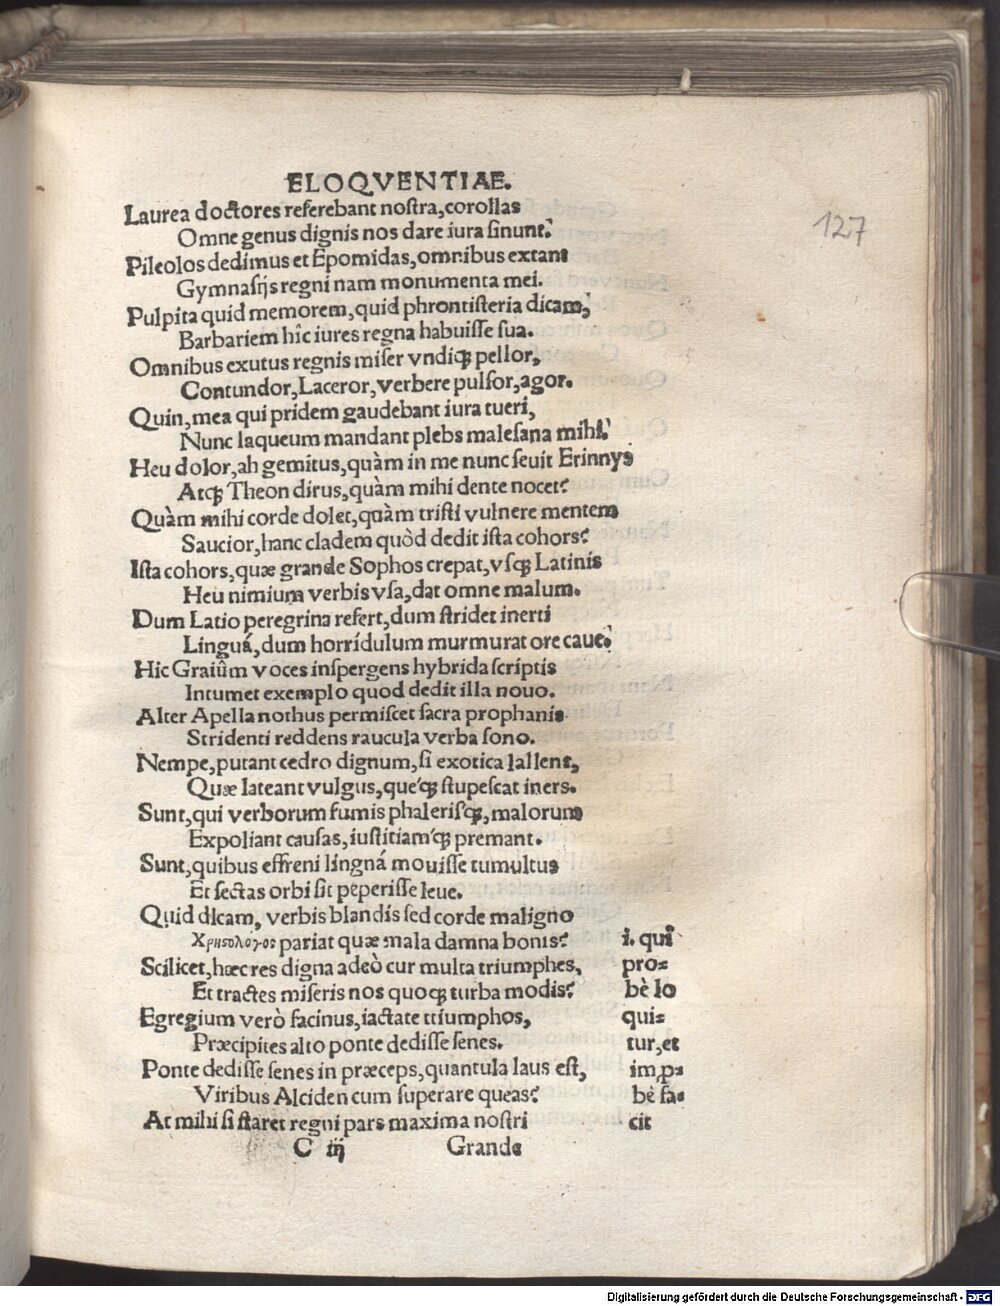 ELOQVENTIAE.
127
Laurea doctores referebant nostra, corollas
Omne genus dignis nos dare iura sinunt.
Pileolos dedimus et Epomidas, omnibus extant
Gymnasijs regni nam monumenta mei.
Pulpita quid memorem, quid phrontisteria dicam,
Barbariem hîc iures regna habuisse sua.
Omnibus exutus regnis miser vndiqꝫ pellor,
Contundor, Laceror, verbere pulsor, agor.
Quin, mea qui pridem gaudebant iura tueri,
Nunc laqueum mandant plebs malesana mihi.
Heu dolor, ah gemitus, quàm in me nunc seuit Erinnys
Atqꝫ Theon dirus, quàm mihi dente nocet?
Quàm mihi corde dolet, quàm tristi vulnere mentem
Saucior, hanc cladem quòd dedit ista cohors?
Ista cohors, quæ grande Sophos crepat, vsqꝫ Latinis
Heu nimium verbis vsa, dat omne malum.
Dum Latio peregrina refert, dum stridet inerti
Linguá, dum horrídulum murmurat ore caue.
Hic Graiûm voces inspergens hybrida scriptis
Intumet exemplo quod dedit illa nouo.
Alter Apella nothus permiscet sacra prophanis
Stridenti reddens raucula verba sono.
Nempe, putant cedro dignum, si exotica lallent,
Quæ lateant vulgus, que'qꝫ stupescat iners.
Sunt, qui verborum fumis phalerisqꝫ, malorum
Expoliant causas, iustitiam'qꝫ premant.
Sunt, quibus effreni linguá mouisse tumultus
Et sectas orbi sit peperisse leue.
Quid dicam, verbis blandis sed corde maligno
Χρησολογος pariat quæ mala damna bonis?
i. qui
Scilicet, hæc res digna adeò cur multa triumphes,
pro=
Et tractes miseris nos quoqꝫ turba modis?
bè lo
Egregium verò facinus, iactate triumphos,
qui=
Præcipites alto ponte dedisse senes.
tur, et
Ponte dedisse senes in præceps, quantula laus est,
im,p=
Viribus Alciden cum superare queas?
bè fa=
At mihi si staret regni pars maxima nostri
cit
C iij
Grande
Digitalisierung gefördert durch die Deutsche Forschungsgemeinschaft - DFG